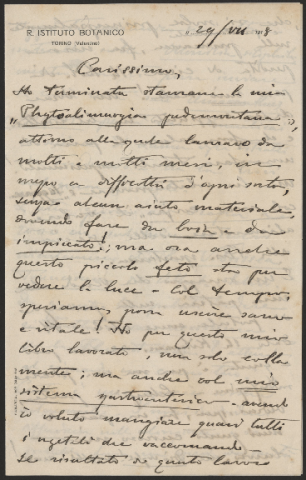 R. ISTITUTO BOTANICO
TORINO (Valentino)
29/VII 1918
Carissimo,
Ho terminata stamane la mia
"Phytoalimurgia pedemontana",
attorno alla quale lavoravo da
molti e molti mesi, in
mezzo a difficoltà d'ogni sorta,
senza alcun aiuto materiale,
dovendo fare da boia e da
impiccato; ma ora anche
questo piccolo feto sta per
vedere la luce - col tempo,
speriamo, possa uscire sano
e vitale! Ho per questo mio
libro lavorato, non solo colla
mente; ma anche col mio
sistema gastroenterico - avendo
io voluto mangiare quasi tutti
i vegetali che raccomando
Se risultato di questo lavoro